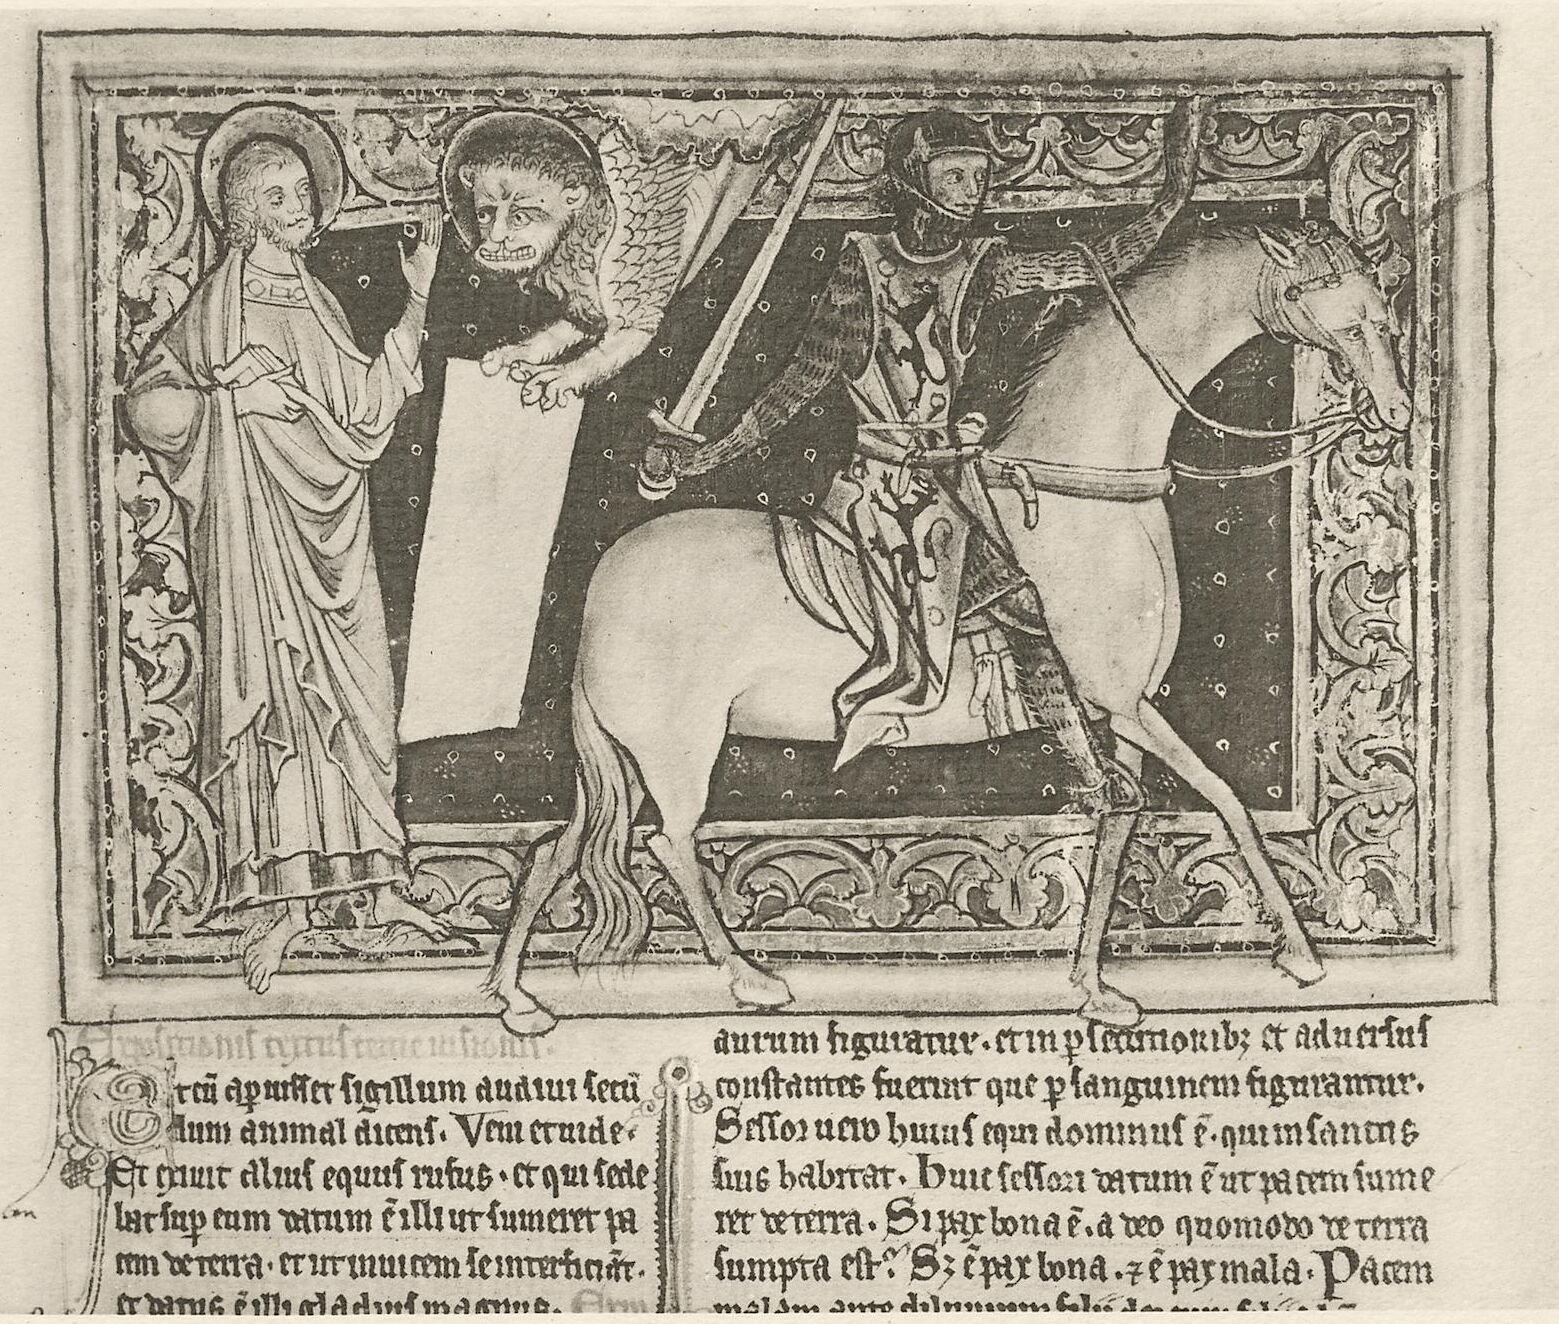 Expositionis textus tercie uisionis.
Et cū apuisset sigillum audiui secū
dum animal dicens. Veni et uide.
Et exiuit alius equus rufus. et qui sede
bat sup eum datum ē illi ut sumeret pa
cem de terra. et ut inuicem se interficiāt.
et datus ē illi gladius magnus.
aurum figuratur. et in ꝑsecutionibꝫ et aduersus
constantes fuerint que ꝑ sanguinem figurantur.
Sessor uero huius equi dominus ē. qui in sanctis
suis habitat. Huic sessori datum ē ut pacem sume
ret de terra. Si pax bona ē. a deo quomodo de terra
sumpta est? Sꝫ ē pax bona. ⁊ ē pax mala. Pacem
malam ante diluuium